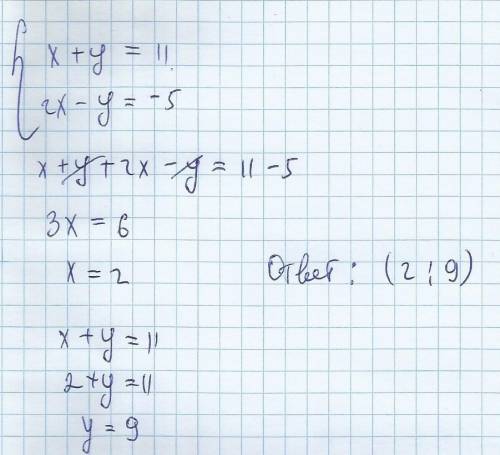 x + y = 11
2x - y = -5
x + y + 2x - y = 11 - 5
3x = 6
x = 2
Ответ: (2; 9)
x + y = 11
2 + y = 11
y = 9